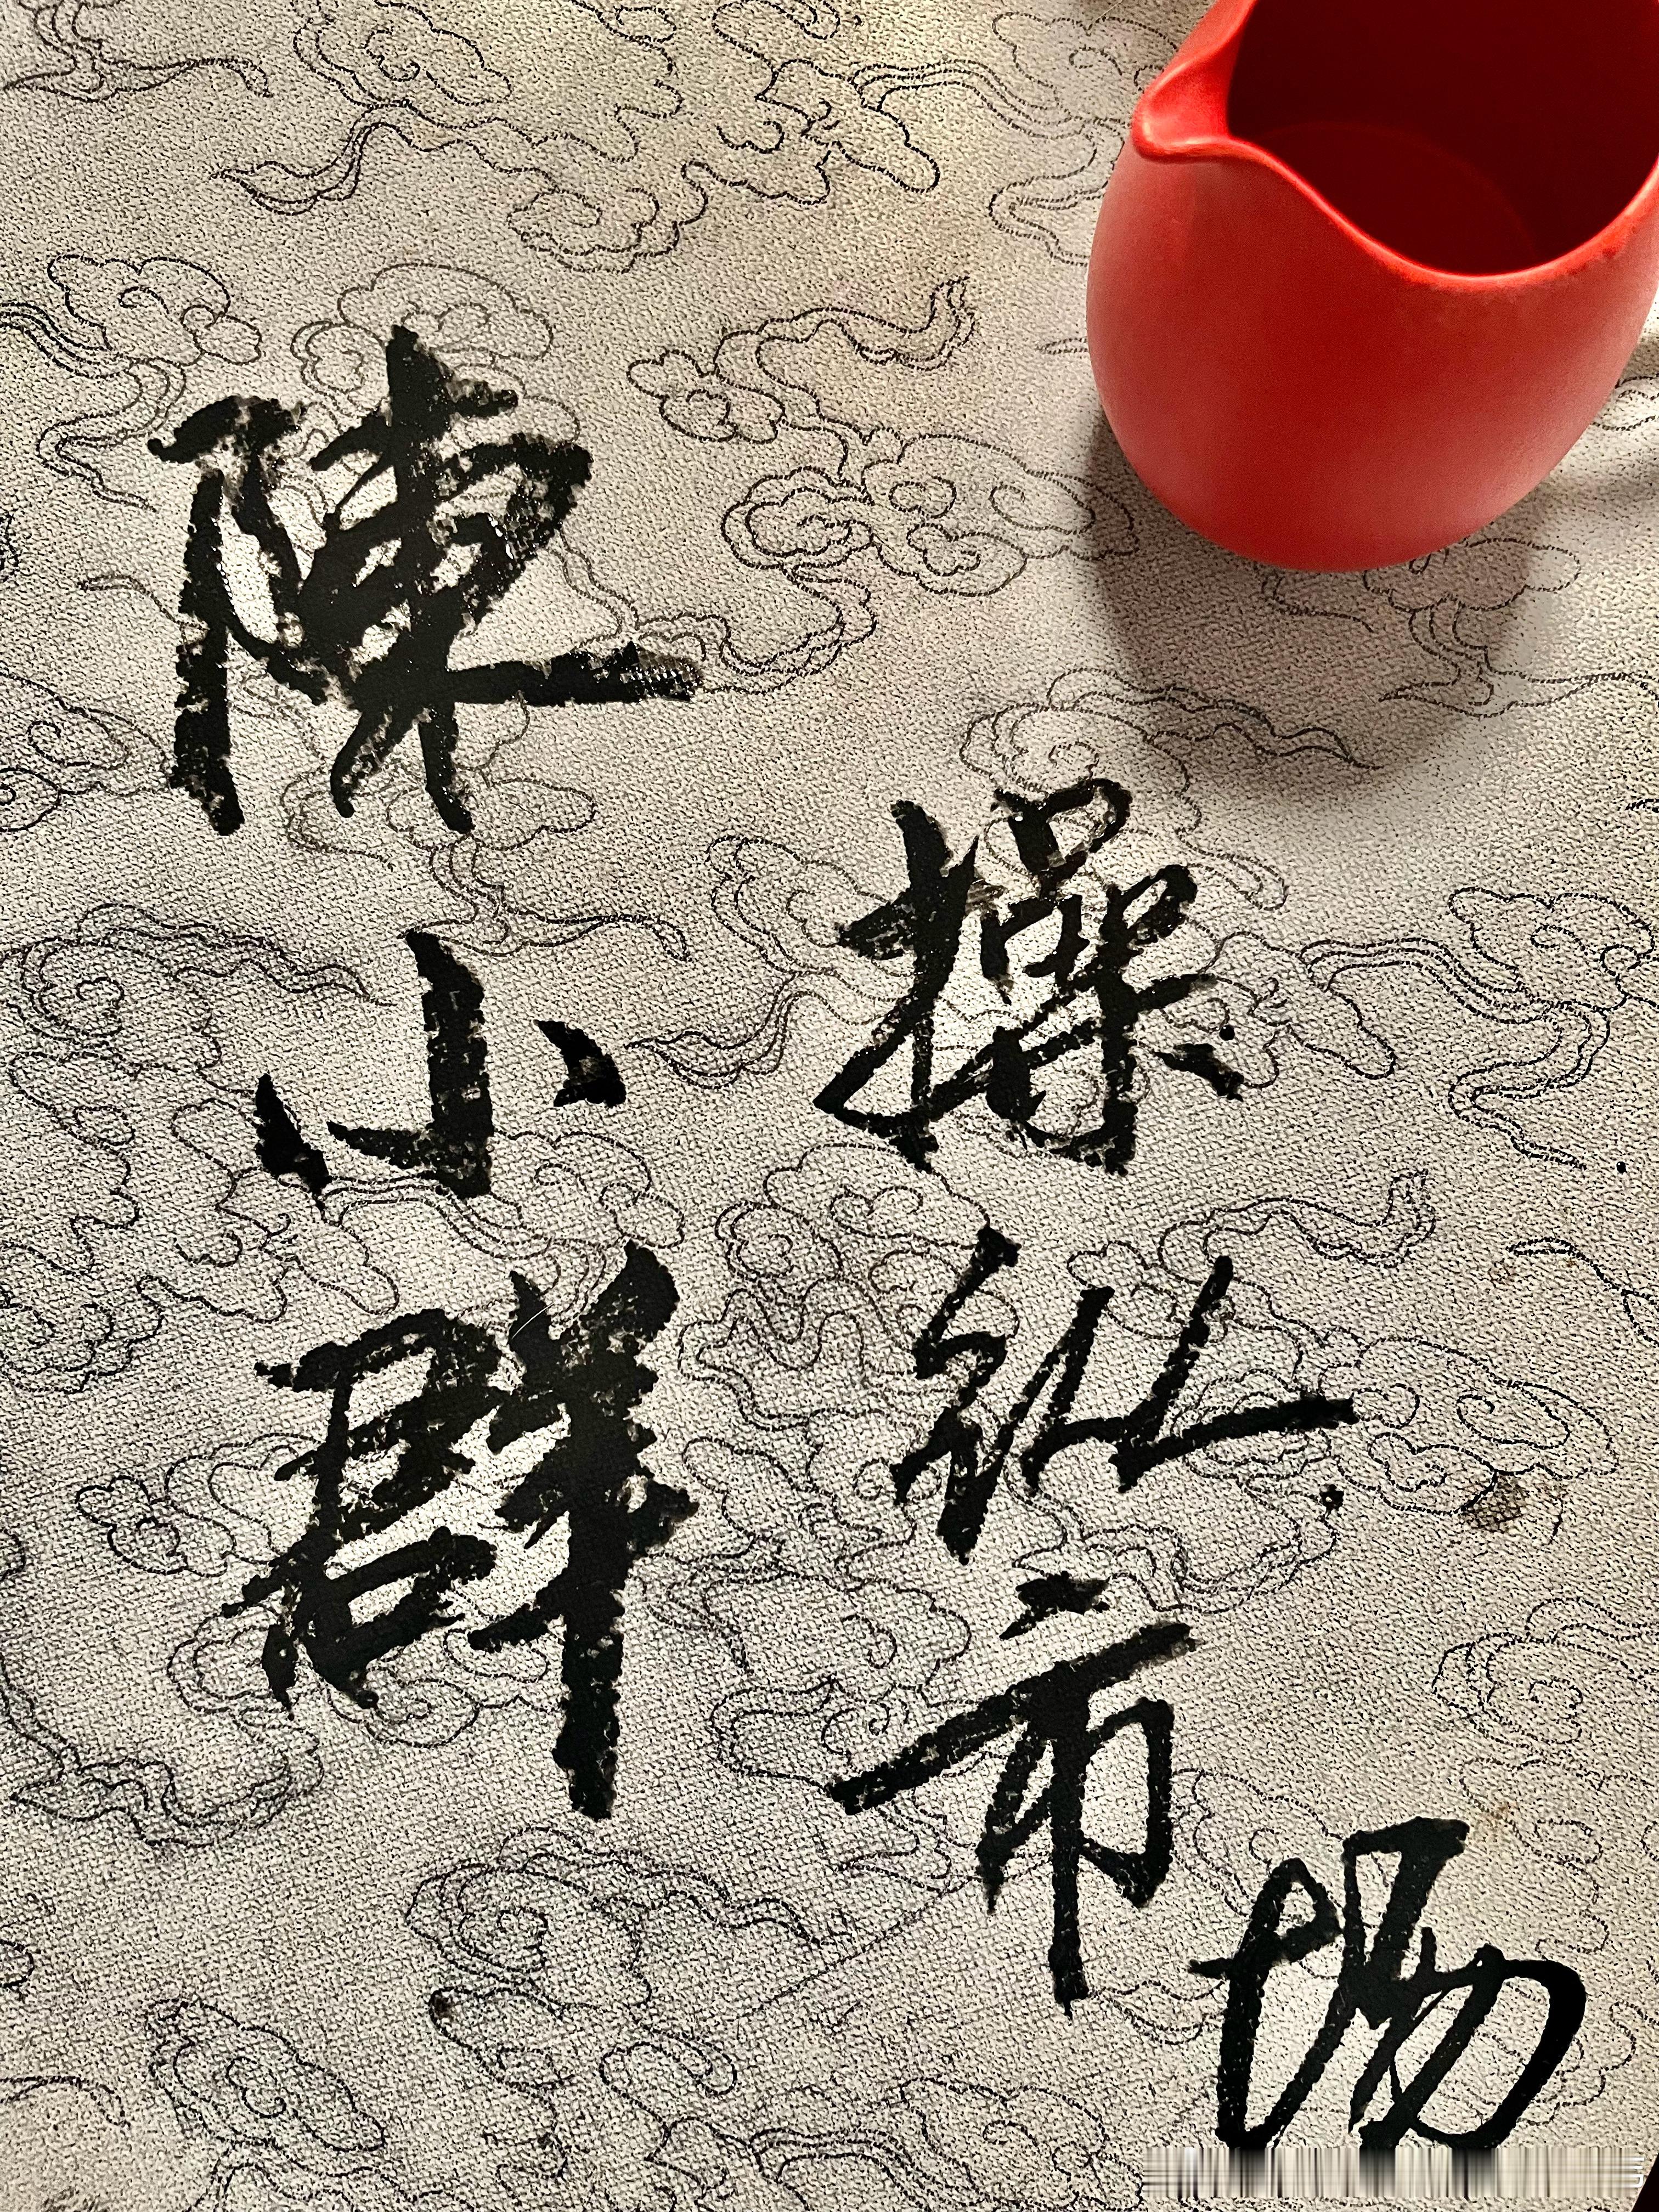 陳小群
操纵市场